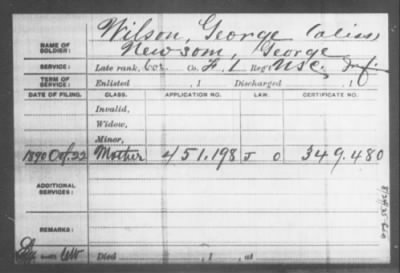 Wilson, George (alias
NAME OF SOLDIER: Newsom, George
SERVICE: Late rank, Co. F, 1 Reg't U S C Inf.
TERM OF SERVICE: Enlisted , 1 Discharged , 1
DATE OF FILING. CLASS. APPLICATION NO. LAW. CERTIFICATE NO.
Invalid,
Widow,
Minor,
1890 Oct. 22 Mother 451.198 J 0 349.480
ADDITIONAL SERVICES:
REMARKS:
Died , 1 , at